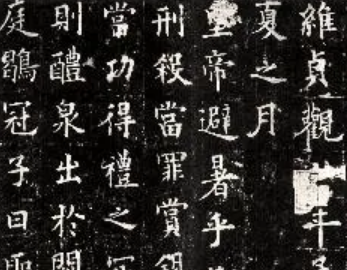 維貞觀年
夏之月
皇帝避暑乎
刑殺當罪賞錫
當功得禮之
則醴泉出於闕
庭鶡冠子曰聖